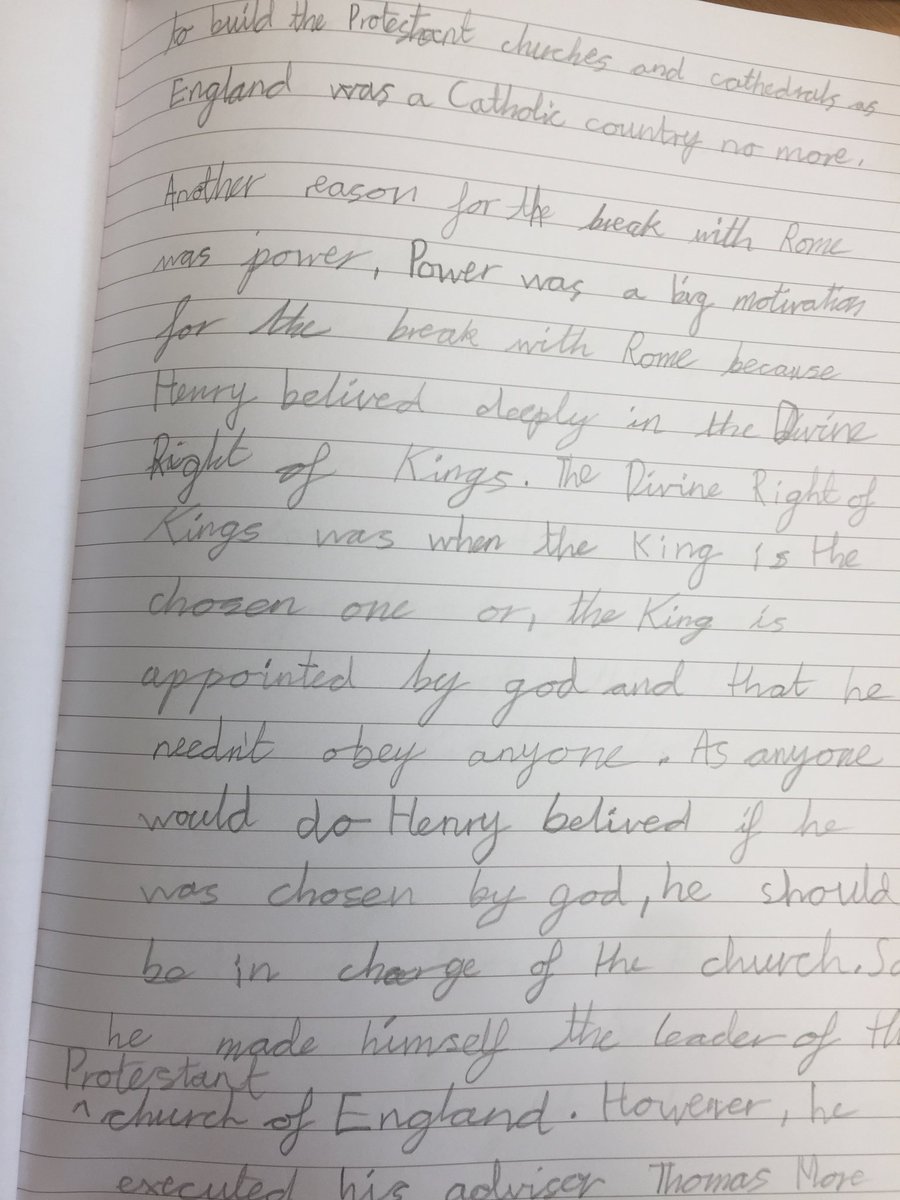 to build the Protestant churches and cathedrals as
England was a Catholic country no more.
Another reason for the break with Rome
was power, Power was a big motivation
for the break with Rome because
Henry belived deeply in the Divine
Right of Kings. The Divine Right of
Kings was when the King is the
chosen one or, the King is
appointed by god and that he
needn't obey anyone. As anyone
would do Henry belived if he
was chosen by god, he should
be in charge of the church. So
he made himself the leader of th
Protestant
^ church of England. However, he
executed his adviser Thomas More